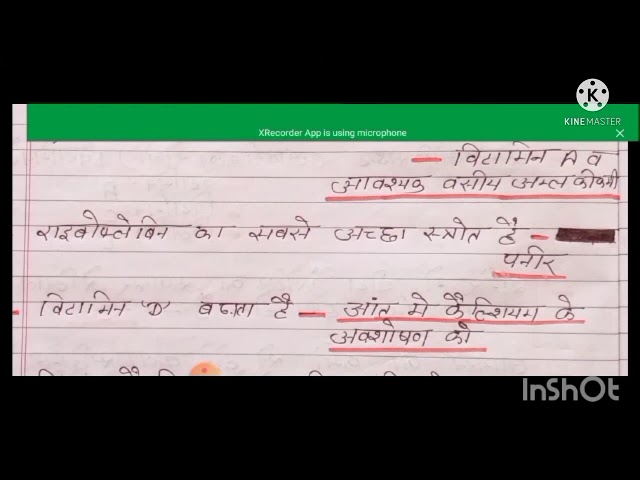 KINEMASTER
XRecorder App is using microphone
— विटामिन A व
आवश्यक वसीय अम्ल की कमी
राइबोफ्लेबिन का सबसे अच्छा स्त्रोत है —
पनीर
विटामिन 'D' बढ़ाता है — आंत मे कैल्शियम के
अवशोषण को
InShOt